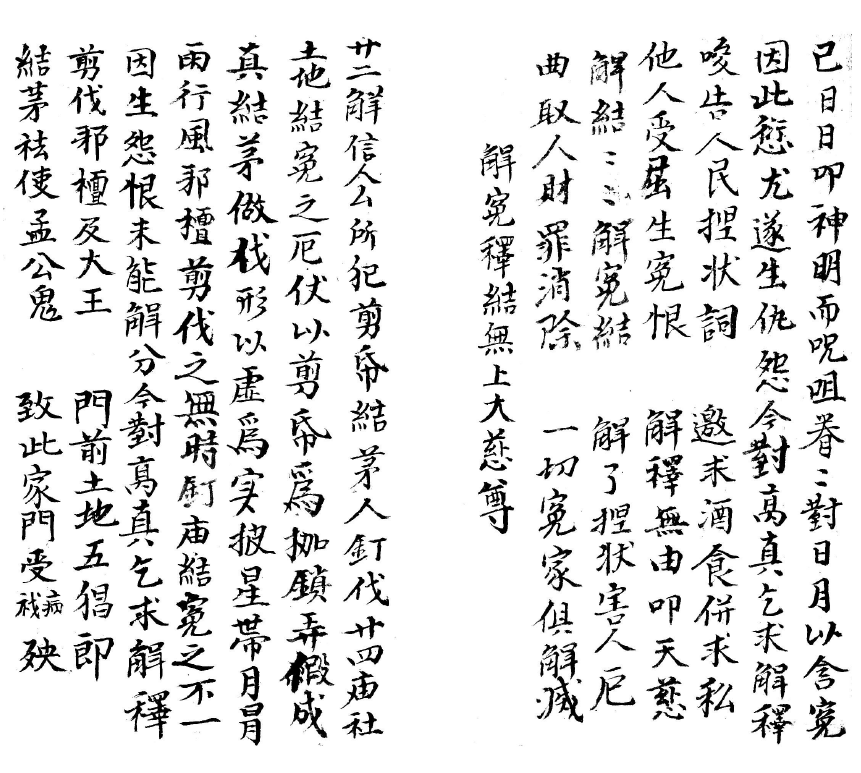 已日日叩神明而咒咀眷〻對日月以含冤
因此愆尤遂生仇怨今對高真乞求解釋
唆告人民捏状詞　邀求酒食併求私
他人受屈生冤恨　解釋無由叩天慈
解結〻〻解冤結　解了捏状害人厄
曲取人財罪消除　一切冤家俱解滅
解冤釋結無上大慈尊
廿二解信人厶所犯剪帋結茅人釘伐廿四庙社
土地結冤之厄伏以剪帋爲枷鎖弄假成
真結茅做伐形以虛爲实披星帶月冒
雨行風邪檀剪伐之無時釘庙結冤之不一
因生怨恨未能解分今對高真乞求解釋
剪伐邪檀及大王　門前土地五猖郎
結茅祛使孟公鬼　致此家門受病殃